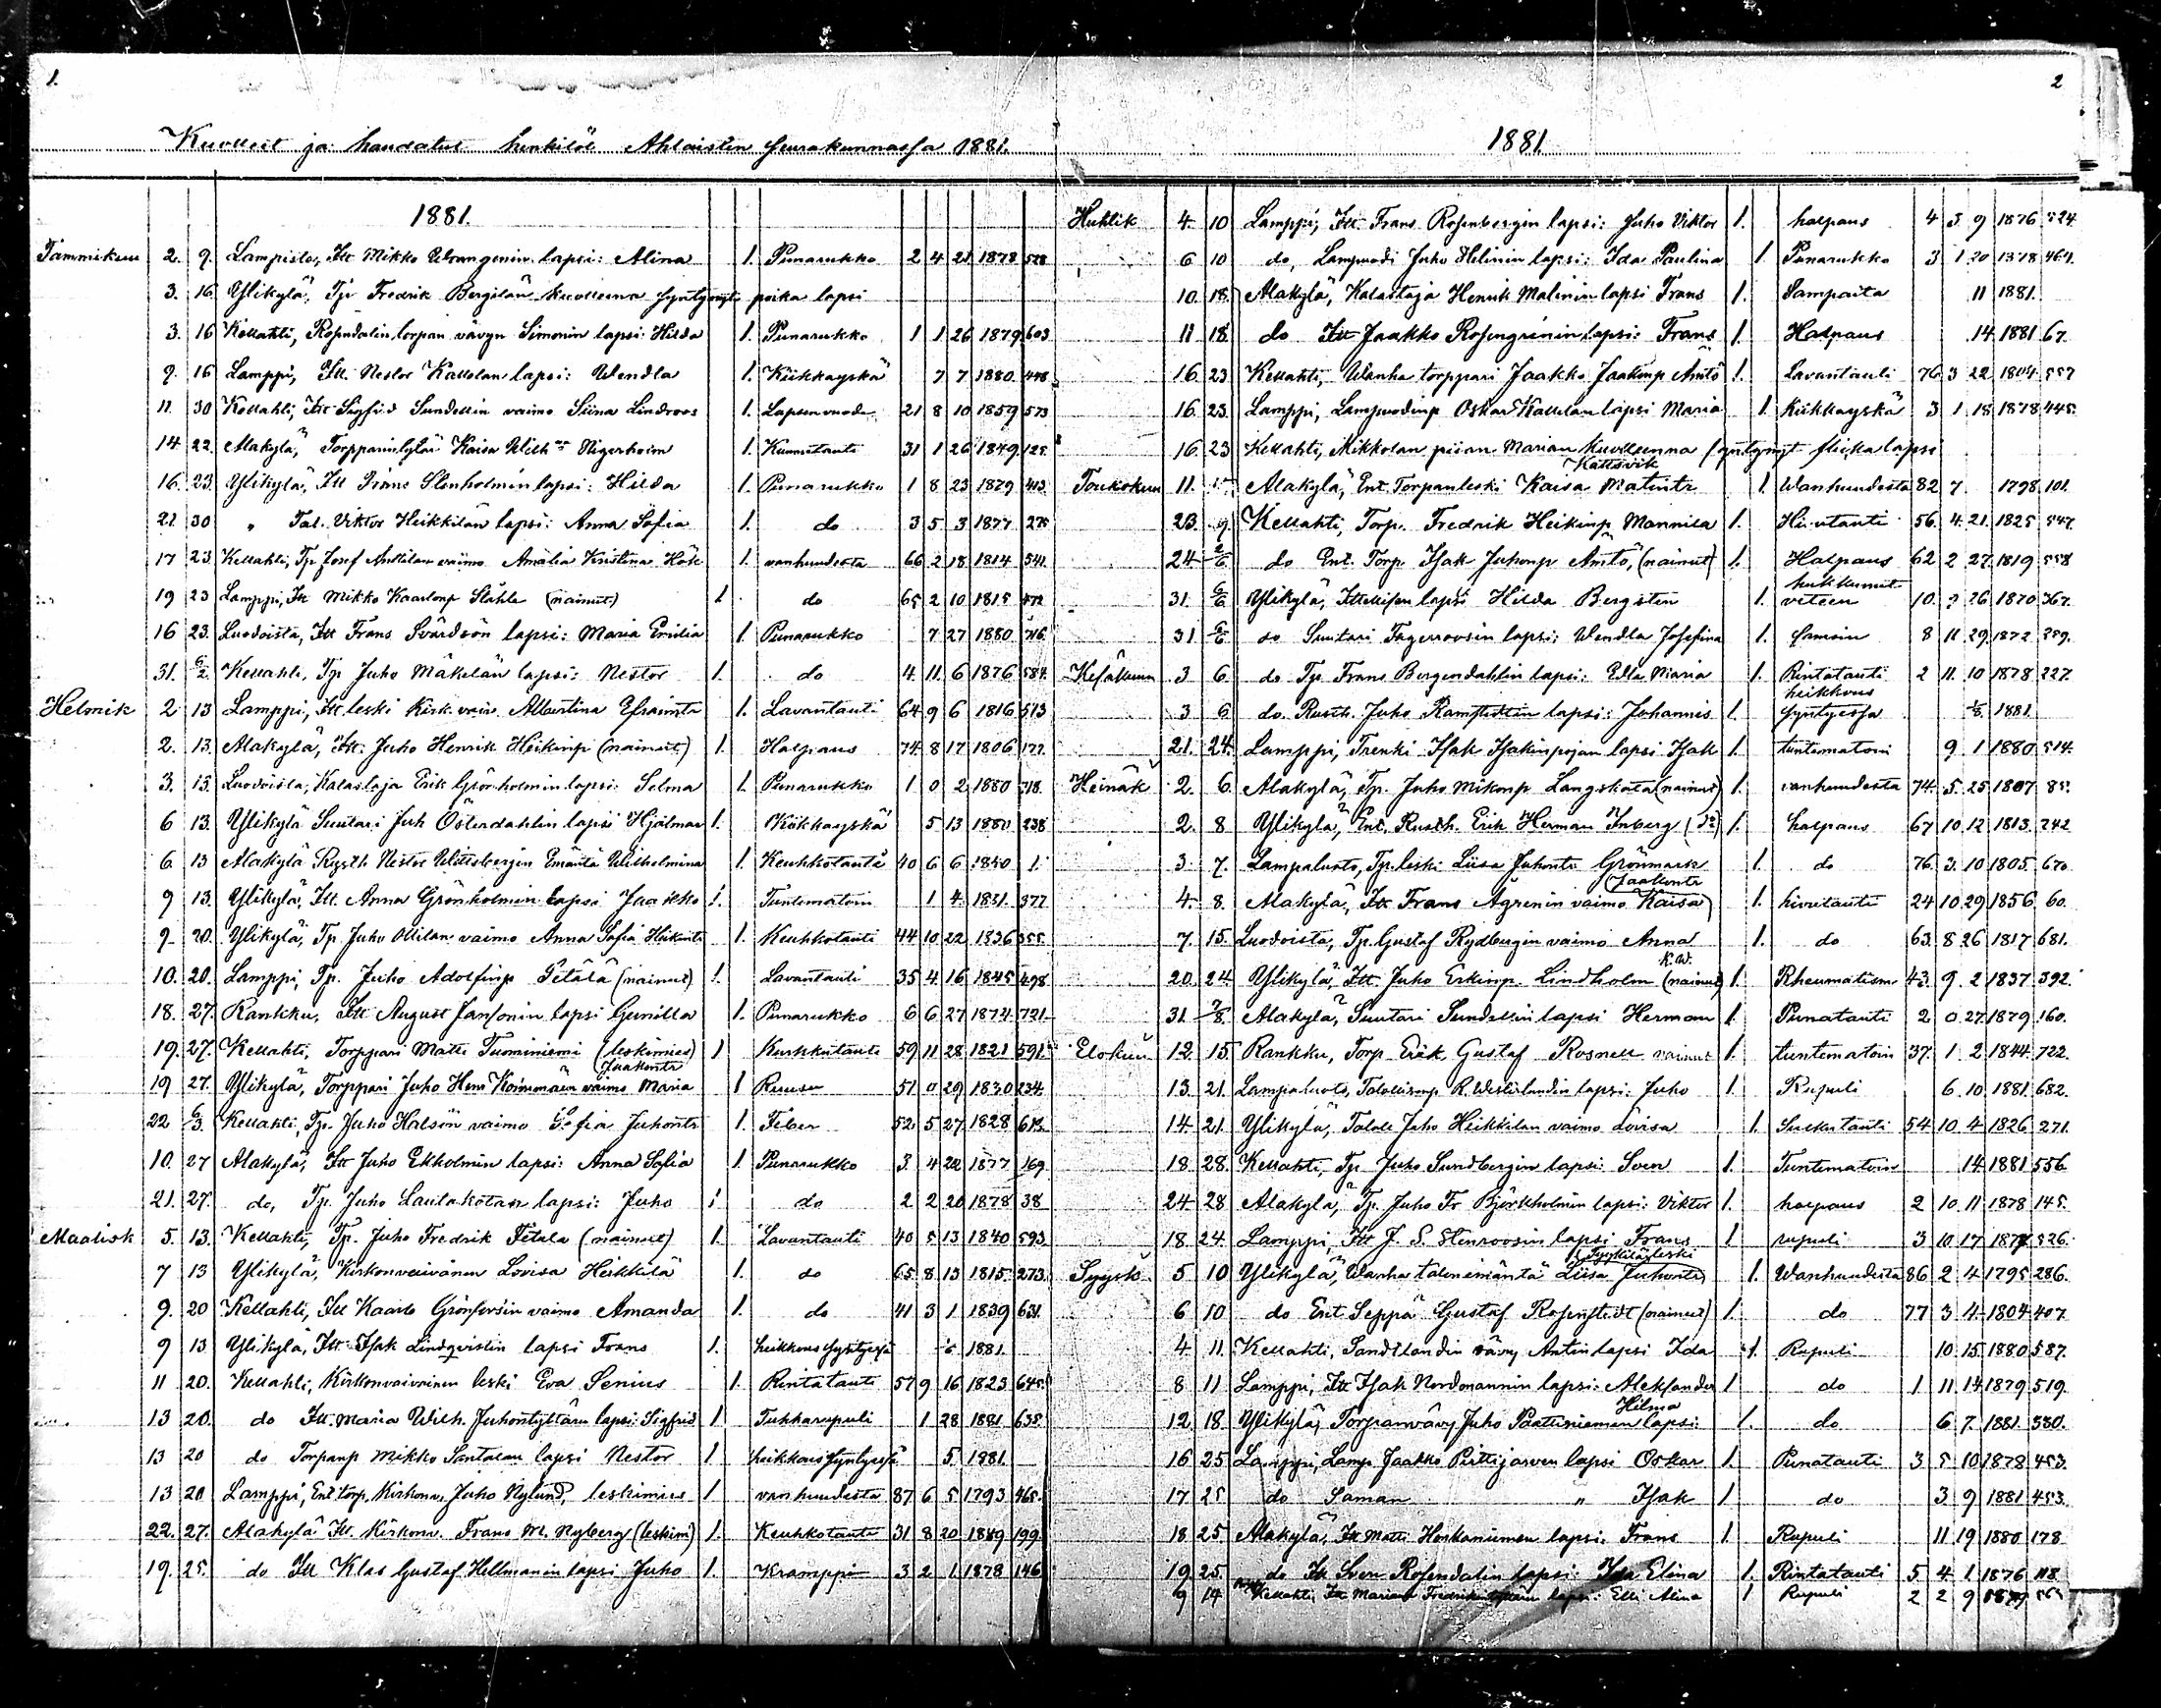 1.
Kuolleet ja haudatut henkilöt Ahlaisten seurakunnassa 1881.
1881.
Tammikuu 2. 9. Lampisto, Itt Mikko lapsi: Alina 1. Punarukko 2 4 21 1878
3. 16 Ylikylä, Tp Fredrik Bergilän kuolleena syntynyt poika lapsi
3 16 Kellahti, Rosendalin torpan vävyn Simonin lapsi: Hilda 1. Punarukko 1 1 26 1879 603
9. 16 Lamppi, Itt. Nestor Kallelan lapsi: Wendla 1. Kiikkayskä 7 7 1880 448
11. 30 Kellahti, Itt Sigfrid Sundellin vaimo Siina Lindroos 1. Lapsenvuode 21 8 10 1859 573
14 22. Alakylä, Kaisa 1. Kuumetauti 31 1 26 1849 125
16. 23. Ylikylä, Itt Frans Stenholmin lapsi: Hilda 1. Punarukko 1 8 23 1879 413
21 30 " Tal. Viktor Heikkilän lapsi: Anna Sofia 1. do 3 5 3 1877 275
17 23. Kellahti, Tp Josef Anttilan vaimo Amalia Kristina Höök 1. vanhuudesta 66 2 18 1814 541.
19 23 Lamppi, Itt Mikko Kaarlonp Ståhle (nainut) 1. do 65 2 10 1815 472
16 23. Luodoista, Itt Frans Svärdsön lapsi: Maria Emilia 1. Punarukko 7 27 1880 716
31. 6/2 Kellahti, Tp Juho Mäkelän lapsi: Nestor 1. do 4 11. 6 1876 584
Helmik 2 13 Lamppi, Itt leski Kirk. vaiv. Albertina Efraimtr 1. Lavantauti 64 9 6 1816 513
2. 13. Alakylä, Itt. Juho Henrik Heikinp (nainut) 1. Halpaus 74 8 17 1806 177.
3. 13. Luodoista, Kalastaja Erik Grönholmin lapsi: Selma 1. Punarukko 1 0 2 1880 718.
6 13. Ylikylä Suutari Juh Österdahlin lapsi Hjalmar 1. Kiikkayskä 5 13 1880 238
6. 13 Alakylä Rusth Nestor Wittsbergin Emäntä Wilhelmina 1. Keuhkotauti 40 6 6 1840 1.
9 13. Ylikylä, Itt. Anna Grönholmin lapsi Jaakko 1. Tuntematoin 1 4. 1881. 377
9. 20. Ylikylä, Tp. Juho Ollilan vaimo Anna Sofia Heikintr 1. Keuhkotauti 44 10 22 1836 355.
10. 20. Lamppi, Tp. Juho Adolfinp Petälä (nainut) 1. Lavantauti 35 4 16 1845 498
18. 27. Rankku, Itt August Jansonin lapsi Gunilla 1. Punarukko 6 6 27 1874 721.
19. 27. Kellahti, Torppari Matti Tuominiemi (leskimies) 1 Keuhkotauti 59 11 28 1821 591.
Jaakontr
19 27. Ylikylä, Torppari Juho Henr Koivumäen vaimo Maria 1 Ruusu 51 0 29 1830 234.
22 6/3. Kellahti, Tp. Juho Halsön vaimo Sofia Juhontr 1. Feber 52. 5 27 1828 613.
10. 27 Alakylä, Itt Juho Ekholmin lapsi: Anna Sofia 1. Punarukko 3. 4 22 1877 169
21. 27. do, Tp. Juho Laulakotan lapsi: Juho 1 do 2 2 20 1878 38
Maalisk 5. 13. Kellahti, Tp. Juho Fredrik Petälä (nainut) 1. Lavantauti 40 5 13 1840 593
7 13 Ylikylä, Kirkonvaivainen Lovisa Heikkilä 1. do 65 8 13 1815. 273
9. 20 Kellahti, Itt Kaarlo Grönforsin vaimo Amanda 1. do 41 3 1. 1839 631
9 13. Ylikylä, Itt Isak Lindqvistin lapsi Frans 1. heikkous syntyessä 1881.
11 20. Kellahti, Kirkonvaivainen leski Eva Senius 1. Rintatauti 57 9 16 1823 645.
13 20. do Itt. Maria Wilh. Juhontyttären lapsi: Sigfrid 1 Tuhkarupuli 1 28 1881 635
13 20 do Torpanp Mikko Santalan lapsi Nestor 1 heikkous syntyessä 5 1881.
13 20 Lamppi, Ent torp. Kirkonv. Juho Nylund, leskimies 1 vanhuudesta 87 6 5 1793 465.
22. 27. Alakylä Itt. Kirkonv. Frans M. Nyberg (leskim) 1. Keuhkotauti 31 8 20 1849 199.
19. 25. do Itt Klas Gustaf Hellmanin lapsi Juho 1. Kramppi 3 2 1. 1878 146
2
1881.
Huhtik 4. 10 Lamppi, Itt. Frans Rosenbergin lapsi: Juho Viktor 1. halpaus 4 3 9 1876 524
6 10 do, Lampuodi Juho Helinin lapsi: Ida Paulina 1. Punarukko 3 1 20 1878 464.
10. 18. Alakylä, Kalastaja Henrik Malinin lapsi Frans 1. 11 1881.
11 18. do Itt Jaakko Rosengrenin lapsi: Frans 1. Halpaus 14. 1881 67.
16 23 Kellahti, Wanha torppari Jaakko Jaakonp Anttö 1. Lavantauti 76 3 22 1804 557
16. 23. Lamppi, Lampuodinp Oskar Kallelan lapsi Maria 1. Kiikkayskä 3 1 18 1878 445.
16. 23 Kellahti, Mikkolan piian Marian kuolleenna syntynyt flicka lapsi
Kattsvik
Toukokuu 11. Alakylä, Ent. Torpanleski Kaisa Matintr 1. Wanhuudesta 82 7 1798 101.
23. Kellahti, Torp. Fredrik Heikinp Mannila 1. 56. 4. 21. 1825 547.
24 2/6 do Ent. Torp Isak Juhonp Anttö, (nainut) 1. Halpaus 62 2 27. 1819 558
hukkunut
31. 5/6 Ylikylä, Itsellisen lapsi Hilda Bergsten 1. veteen 10. 26 1870 367.
31 5/6 do Suutari Fagerroosin lapsi: Wendla Josefina 1. samoin 8 11. 29. 1872 259.
Kesäkuu 3 6. do Tp. Frans Bergendahlin lapsi: Ella Maria 1. Rintatauti 2 11. 10 1878 227.
heikkous
3 6 do. Rusth. Juho Ramstedtin lapsi: Johannes 1. syntyessä 1881.
21. 24. Lamppi, Trenki Isak Isakinpojan lapsi Isak 1. tuntematoin 9. 1 1880 514.
Heinäk 2. 6. Alakylä, Tp. Juho Mikonp Långskata (nainut) 1. vanhuudesta 74. 5 25 1807 85.
2. 8 Ylikylä, Ent. Rusth. Erik Herman Inberg (do) 1. halpaus 67 10 12 1813. 242
3. 7. Lampaluoto, Tp. leski Liisa Juhontr Grönmark 1. do 76. 3. 10 1805. 670
Jaakontr
4. 8. Alakylä, Itt Frans Ågrenin vaimo Kaisa 1. hivutauti 24 10 29 1856 60.
7. 15. Luodoista, Tp. Gustaf Rydbergin vaimo Anna 1. do 63. 8 26 1817 681.
K.W.
20. 24 Ylikylä, Itt. Juho Erkinp. Lindholm (nainut) 1. Rheumatism 43. 9. 2 1837 392.
31. 7/8. Alakylä, Suutari Sundellin lapsi Herman 1. Punatauti 2 0 27 1879 160.
Elokuu 12. 15. Rankku, Torp Erik Gustaf Rosnell nainut 1. tuntematoin 37. 1 2 1844. 722.
13. 21. Lampaluoto, Talollisenp R. Westerlundin lapsi: Juho 1 Rupuli 6 10 1881. 682.
14. 21. Ylikylä, Taloll Juho Heikkilän vaimo Lovisa 1. 54 10 4 1826 271.
18 28. Kellahti, Tp. Juho Sundbergin lapsi Sven 1. Tuntematoin 14 1881 556
24 28 Alakylä, Tp. Juho Fr Björkholmin lapsi: Viktor 1. halpaus 2 10 11 1878 145.
18. 24. Lamppi, Itt J. S. Stenroosin lapsi Frans 1 rupuli 3 10 17 1877 526.
Syysk. 5 10 Ylikylä, Wanha talonemäntä Liisa Juhontr 1. Wanhuudesta 86 2 4 1795 286.
6 10 do Ent. Seppä Gustaf Rosenstedt (nainut) 1. do 77 3 4 1804 407.
4 11. Kellahti, Sandtlandin vävy Antin lapsi Ida 1. Rupuli 10. 15. 1880 587.
8 11 Lamppi, Itt Isak Nordmannin lapsi: Aleksander 1 do 1 11. 14 1879. 519.
Hilma
12. 18 Ylikylä, Torpanvävy Juho Paattiniemen lapsi: 1. do 6 7. 1881. 380.
16 25 Lamppi, Lamp Jaakko Pirttijärven lapsi Oskar 1. Punatauti 3 5 10 1878 453.
17 25 do Saman " Isak 1 do 3 9 1881 453.
18 25 Alakylä, Itt Matti Honkaniemen lapsi: Frans 1 Rupuli 11 19 1880 178
19 25. do Itt Sven Rosendalin lapsi: Ida Elina 1. Rintatauti 5 4. 1. 1876 118.
9 14 Kellahti, Itt Maria Fredrikintyttären lapsi: Elli Alina 1 Rupuli 2 2 9 1879